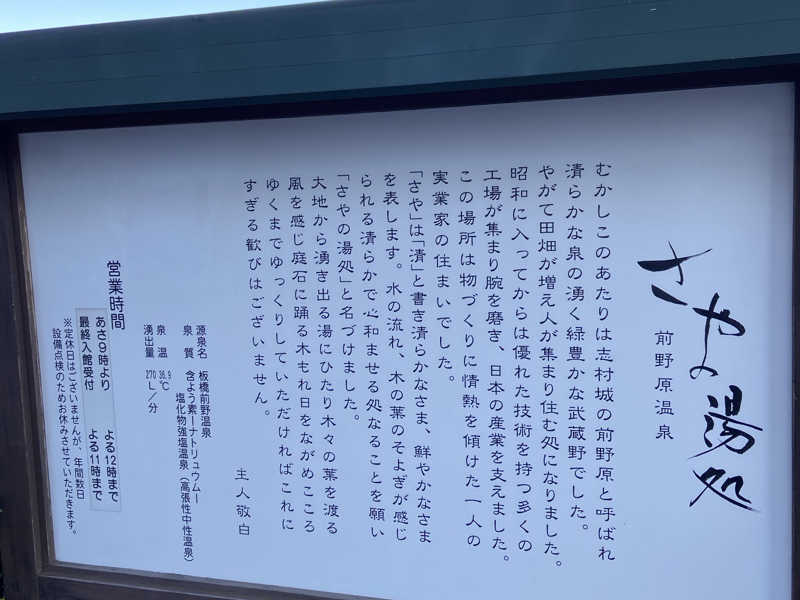 さやの湯処
前野原温泉
むかしこのあたりは志村城の前野原と呼ばれ
清らかな泉の湧く緑豊かな武蔵野でした。
やがて田畑が増え人が集まり住む処になりました。
昭和に入ってからは優れた技術を持つ多くの
工場が集まり腕を磨き、日本の産業を支えました。
この場所は物づくりに情熱を傾けた一人の
実業家の住まいでした。
「さや」は「清」と書き清らかなさま、鮮やかなさま
を表します。水の流れ、木の葉のそよぎが感じ
られる清らかで心和ませる処なることを願い
「さやの湯処」と名づけました。
大地から湧き出る湯にひたり木々の葉を渡る
風を感じ庭石に踊る木もれ日をながめこころ
ゆくまでゆっくりしていただければこれに
すぎる歓びはございません。
主人敬白
源泉名 板橋前野温泉
泉質 含よう素ーナトリュウムー
塩化物強塩温泉(高張性中性温泉)
泉温 36.9℃
湧出量 270L/分
営業時間
あさ9時より よる12時まで
最終入館受付 よる11時まで
※定休日はございませんが、年間数日
設備点検のためお休みさせていただきます。